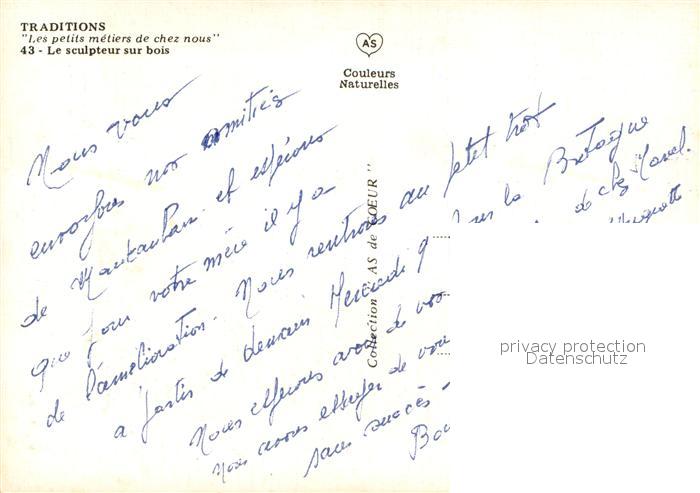 TRADITIONS
"Les petits métiers de chez nous"
43 - Le sculpteur sur bois
AS
Couleurs
Naturelles
Collection " AS de COEUR "
Nous vous
envoyons nos amitiés
de Montauban et espérons
que pour votre mère il y a
de l'amélioration. Nous rentrons au petit trot
à partir de demain Mercredi
sur la Bretagne
de chez Marcel.
Nous espérons avoir de vos
Nous avons essayer de vous
sans succès
privacy protection
Datenschutz